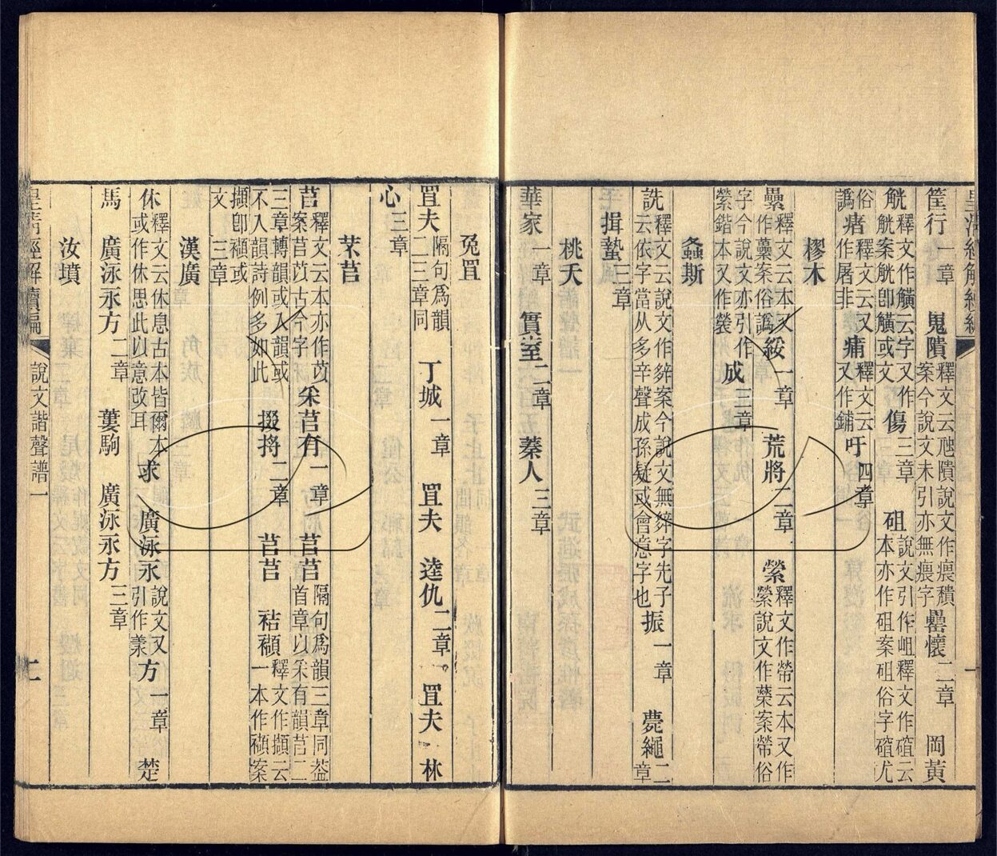 筐行一章　嵬隤釋文云虺隤說文作瘣穨案今說文未引亦無瘣字罍懷二章　岡黃
觥釋文作觵云字又作觥案觥卽觵或文傷三章　砠說文引作岨釋文作碹云本亦作砠案砠俗字碹尤
俗譌瘏釋文云又作屠非痡釋文云又作鋪吁四章
樛木
纍釋文云本又作虆案俗譌綏一章　荒將二章　縈釋文作帶云本又作縈說文作藥案帶俗
字今說文亦引作縈鍇本又作褮成三章
螽斯
詵釋文云說文作案今說文無字先子云依字當从多辛聲成孫疑或會意字也振一章　薨繩二章
揖蟄三章
桃夭
華家一章　實室二章　蓁人三章
兔罝
罝夫隔句爲韻二三章同　丁城一章　罝夫　逵仇二章　罝夫　林
心三章
芣苢
苢釋文云本亦作苡案苢苡古今字采苢有一章　苢苢隔句爲韻三章同葢首章以采有韻苢二
三章轉韻或入韻或不入韻詩例多如此　掇捋二章　苢苢　袺襭釋文作擷云一本作襭案
擷卽襭或文　三章
漢廣
休釋文云休息古本皆爾本或作休思此以意改耳求　廣泳永說文又引作羕方一章　楚
馬　廣泳永方二章　蔞駒　廣泳永方三章
汝墳
皇清經解續編　說文諧聲譜一　二